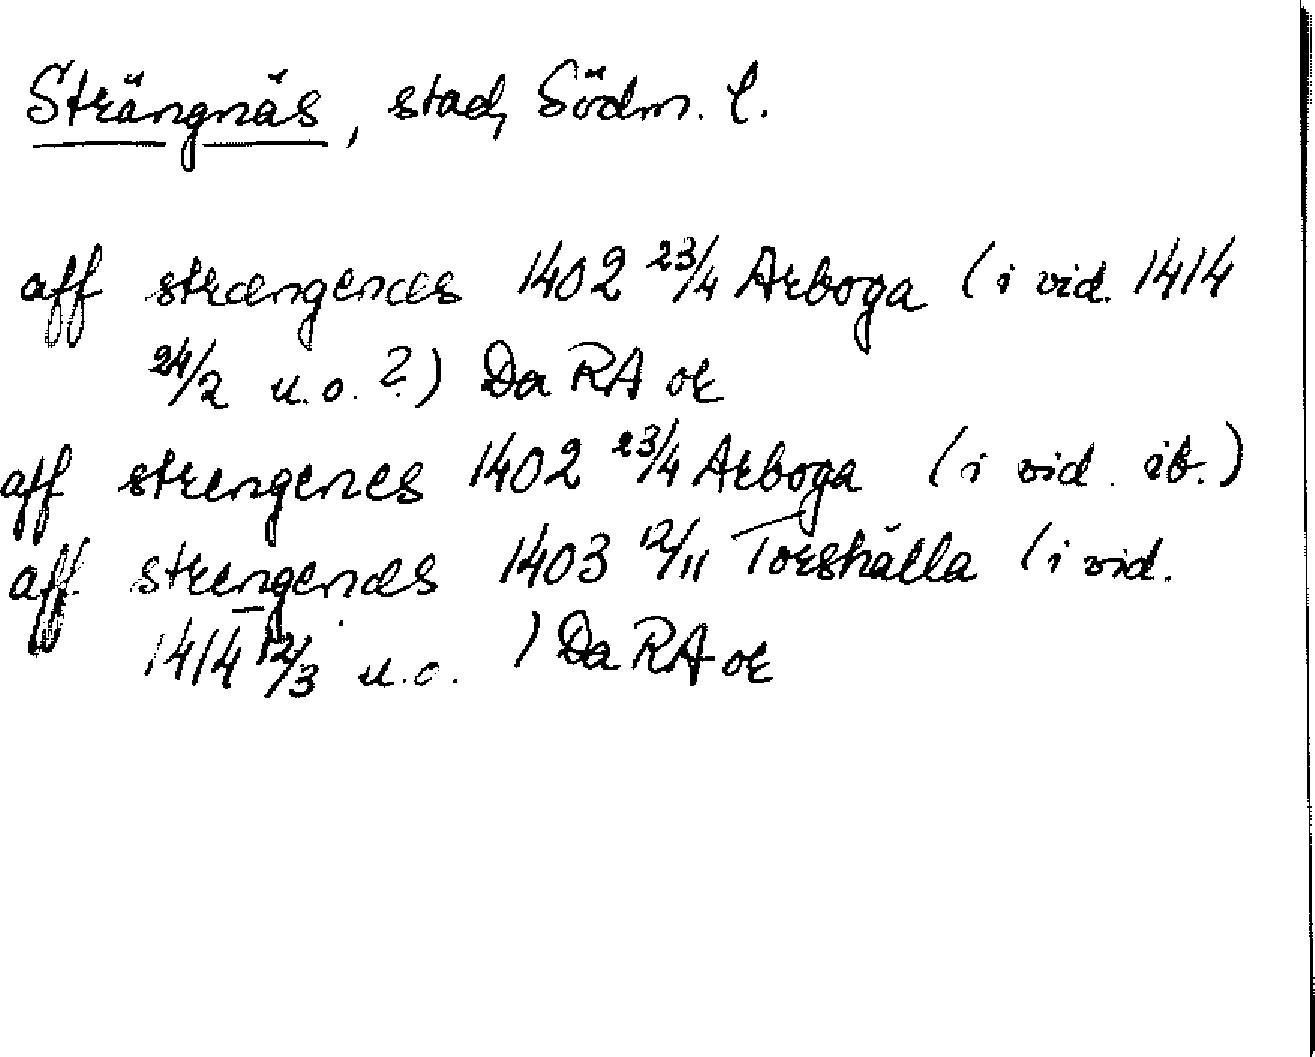 Strängnäs, stad, Södm. l.
aff strængenæs 1402 23/4 Arboga (i vid. 1414
24/2 u.o.?) Da RA or
aff strengenes 1402 23/4 Arboga (i vid. ib.)
aff strengenæs 1403 12/11 Torshälla (i vid.
1414 12/3 u.o. ) Da RA or